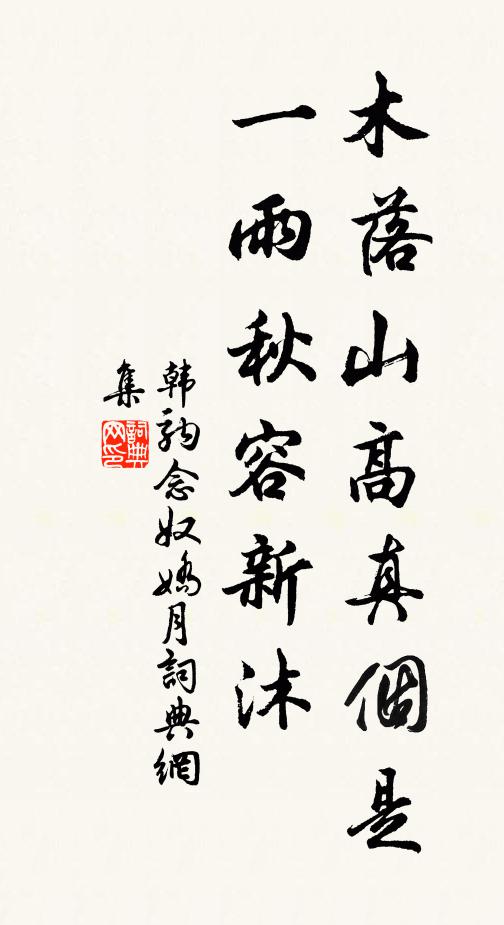 木落山高真個是
一雨秋容新沐
韩驹念奴嬌月詞典網
集
詞典网印